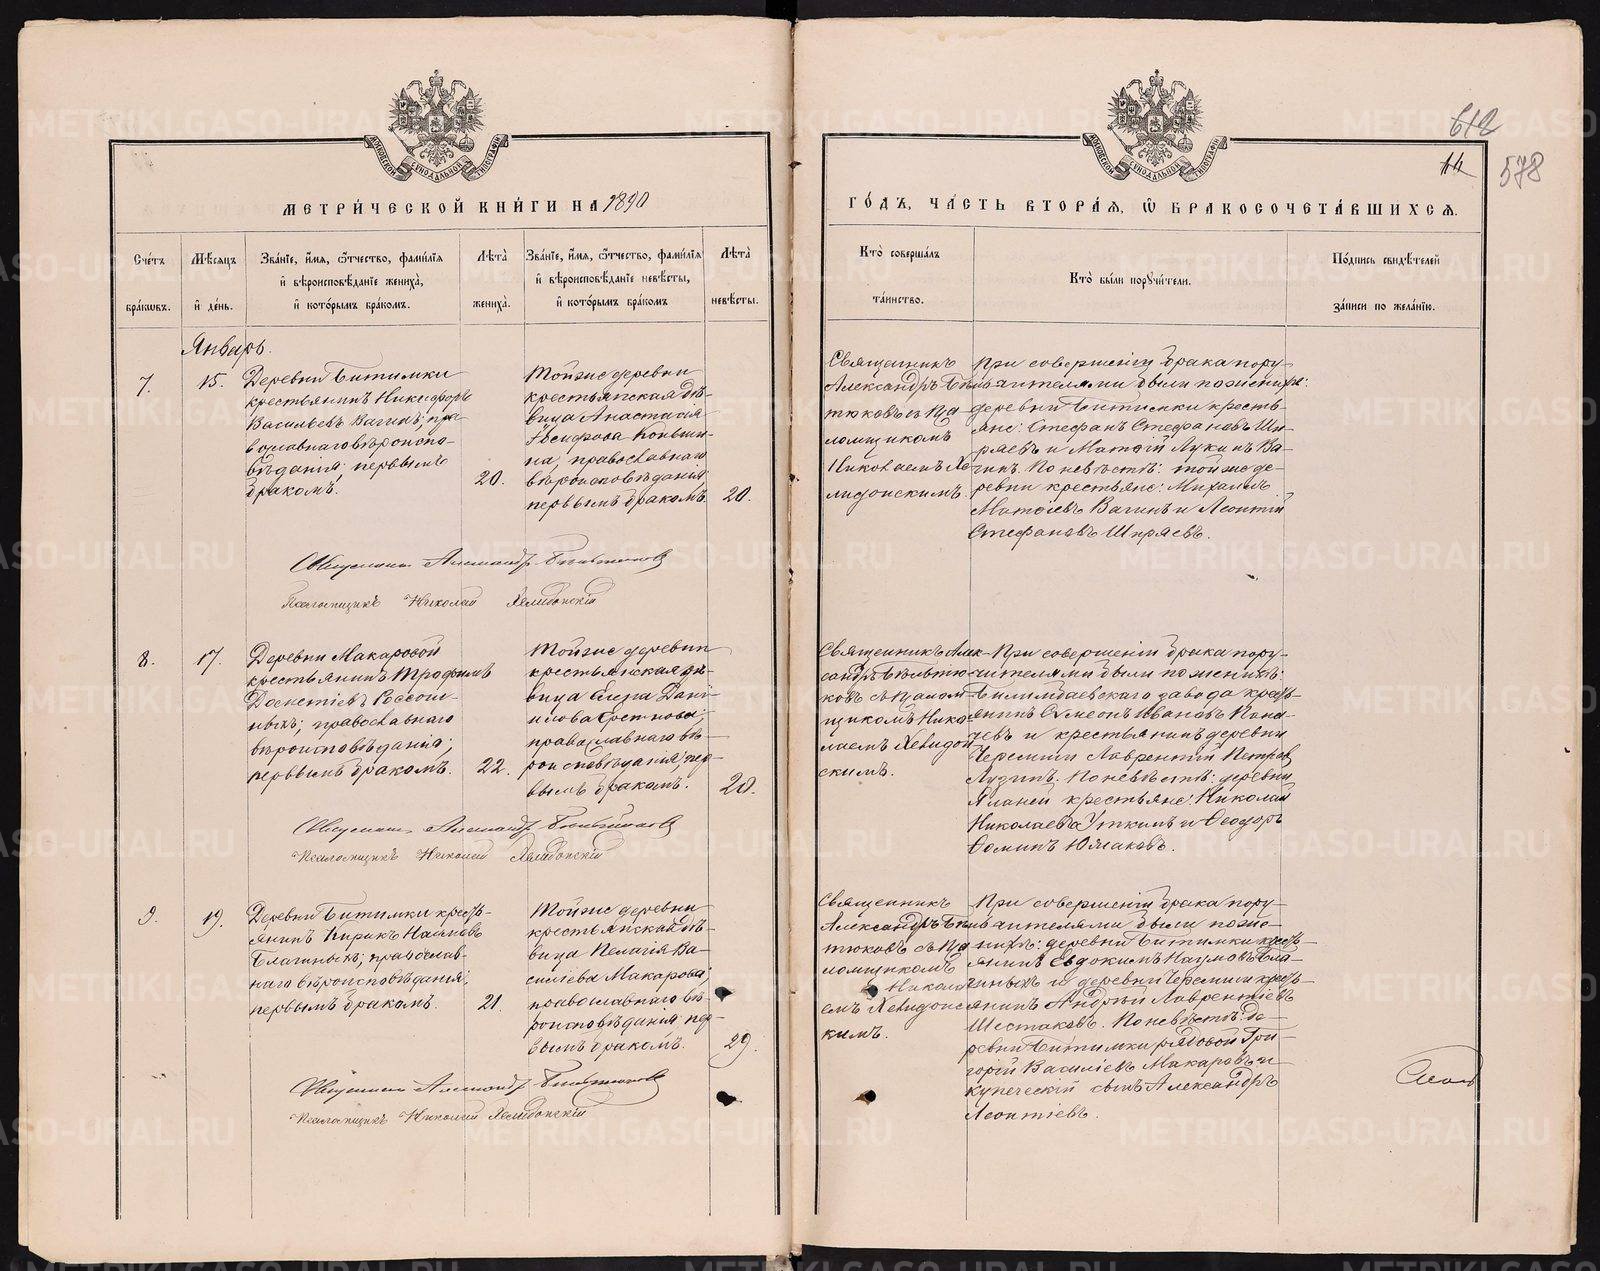 МЕТРИ́ЧЕСКОЙ КНИ́ГИ НА 1890
ГО́ДЪ, ЧА́СТЬ ВТОРА́Я, Ѡ҆ БРАКОСОЧЕТА́ВШИХСЯ.
612
14
578
Сче́тъ бра́ковъ.
Мѣ́сяцъ и҆ де́нь.
Зва́нїе, и҆́мя, ѻ҆́тчество, фами́лїя
и҆ вѣроисповѣ́данїе жениха̀,
и҆ кото́рымъ бра́комъ.
Лѣ́та жениха̀.
Зва́нїе, и҆́мя, ѻ҆́тчество, фами́лїя
и҆ вѣроисповѣ́данїе невѣ́сты,
и҆ кото́рымъ бра́комъ
Лѣ́та невѣ́сты.
Кто̀ соверша́лъ
та́инство.
Кто̀ бы́ли порꙋчи́тели.
По́дпись свидѣ́телей
за́писи по жела́нїю.
Январь.
7.
15.
Деревни Битимки
крестьянинъ Никифоръ
Васильевъ Вагинъ; пра-
вославнаго вѣроиспо-
вѣданія; первымъ
бракомъ.
20.
Тойже деревни
крестьянская дѣ-
вица Анастасія
Іосифова Коньши-
на, православнаго
вѣроисповѣданія,
первымъ бракомъ.
20.
Священникъ
Александръ Бѣль-
тюковъ съ Пса-
ломщикомъ
Николаемъ Хе-
лидонскимъ.
При совершеніи брака пору-
чителями были по женихѣ:
деревни Битимки кресть-
яне: Стефанъ Стефановъ Ши-
ряевъ и Матѳій Лукинъ Ва-
гинъ. По невѣстѣ: тойже де-
ревни крестьяне: Михаилъ
Матѳіевъ Вагинъ и Леонтій
Стефановъ Ширяевъ.
Священникъ Александръ Бѣльтюковъ
Псаломщикъ Николай Хелидонскій
8.
17.
Деревни Макаровой
крестьянинъ Трофимъ
православнаго
вѣроисповѣданія;
первымъ бракомъ.
22.
Тойже деревни
крестьянская дѣ-
вица Дані-
илова
православнаго вѣ-
роисповѣданія; пер-
вымъ бракомъ.
20.
Священникъ Алек-
сандръ Бѣльтю-
ковъ съ Псалом-
щикомъ Нико-
лаемъ Хелидон-
скимъ.
При совершеніи брака пору-
чителями были по женихѣ:
Билимбаевскаго завода кресть-
янинъ Сѵмеонъ Ивановъ
и крестьянинъ деревни
Черемши Лаврентій Петровъ
По невѣстѣ: деревни
крестьяне: Николай
Николаевъ Уткинъ и Ѳеодоръ
Ѳоминъ Юмаковъ.
Священникъ Александръ Бѣльтюковъ
Псаломщикъ Николай Хелидонскій
9.
19.
Деревни Битимки кресть-
янинъ Кирикъ Наумовъ
православ-
наго вѣроисповѣданія;
первымъ бракомъ.
21.
Тойже деревни
крестьянская дѣ-
вица Пелагія Ва-
сильева Макарова;
православнаго вѣ-
роисповѣданія; пер-
вымъ бракомъ.
29.
Священникъ
Александръ Бѣль-
тюковъ съ Пса-
ломщикомъ
Никола-
емъ Хелидонс-
кимъ.
При совершеніи брака пору-
чителями были по же-
нихѣ: деревни Битимки кресть-
янинъ Евдокимъ Наумовъ
и деревни Черемши кресть-
янинъ Андрей Лаврентіевъ
Шестаковъ. По невѣстѣ: де-
ревни Битимки рядовой Гри-
горій Василіевъ Макаровъ и
купеческій сынъ Александръ
Леонтіевъ.
Священникъ Александръ Бѣльтюковъ
Псаломщикъ Николай Хелидонскій
METRIKI.GASO-URAL.RU